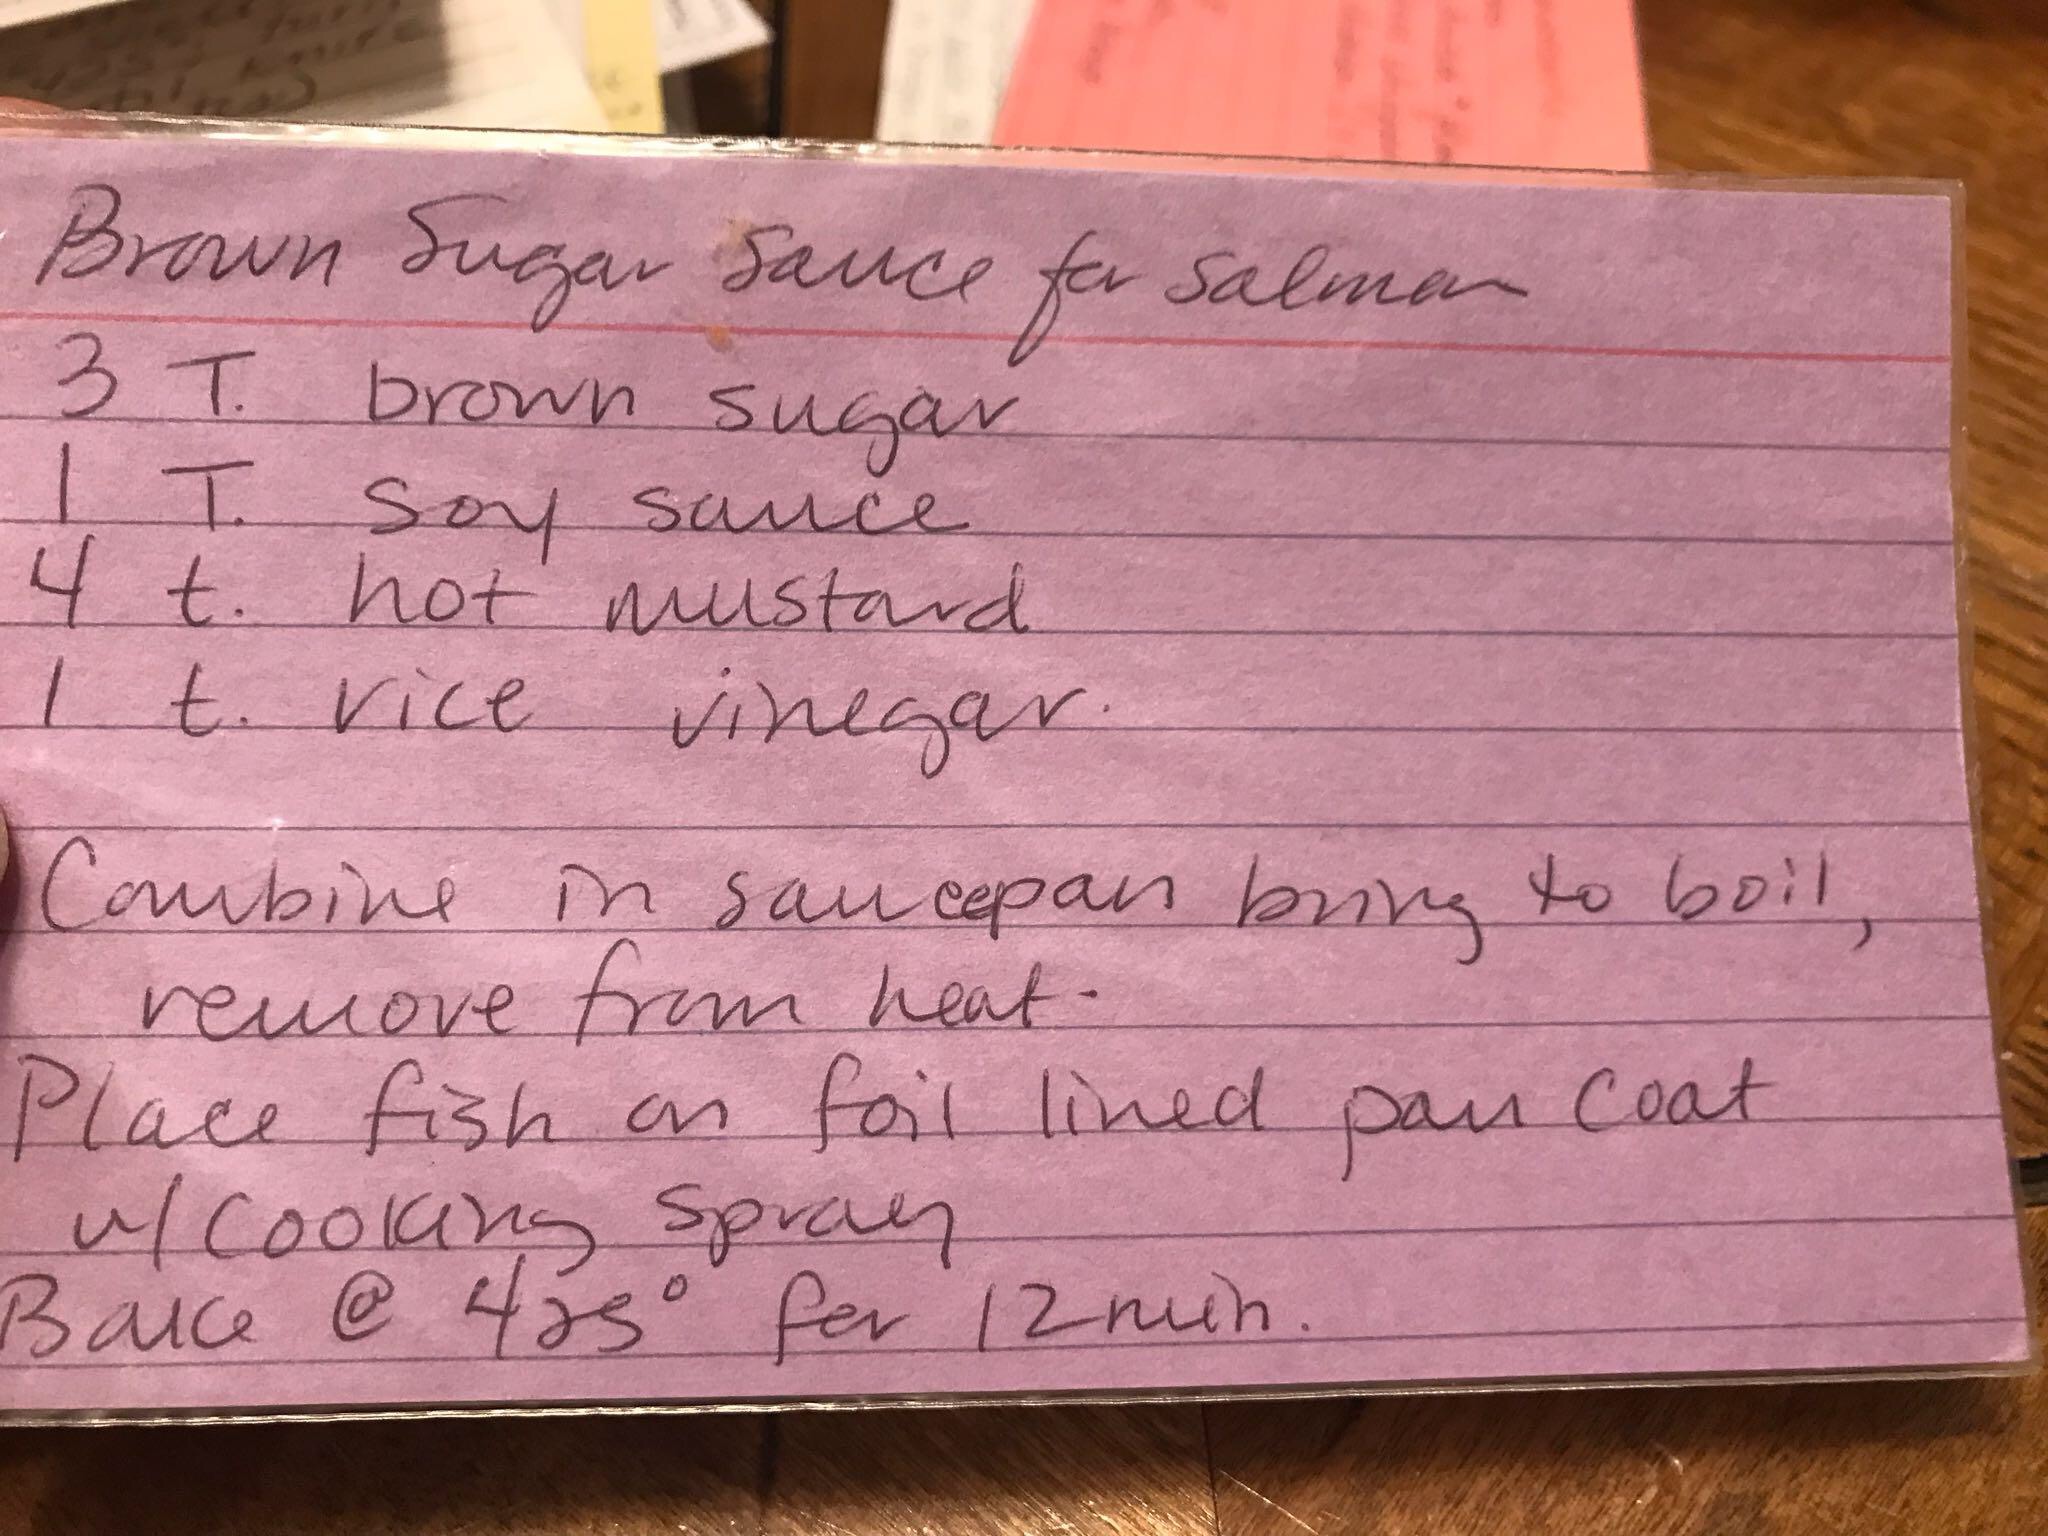 Brown Sugar Sauce for Salmon
3 T. brown sugar
1 T. soy sauce
4 t. hot mustard
1 t. rice vinegar.
Combine in saucepan bring to boil,
remove from heat.
Place fish on foil lined pan coat
w/ cooking spray
Bake @ 425° for 12 min.